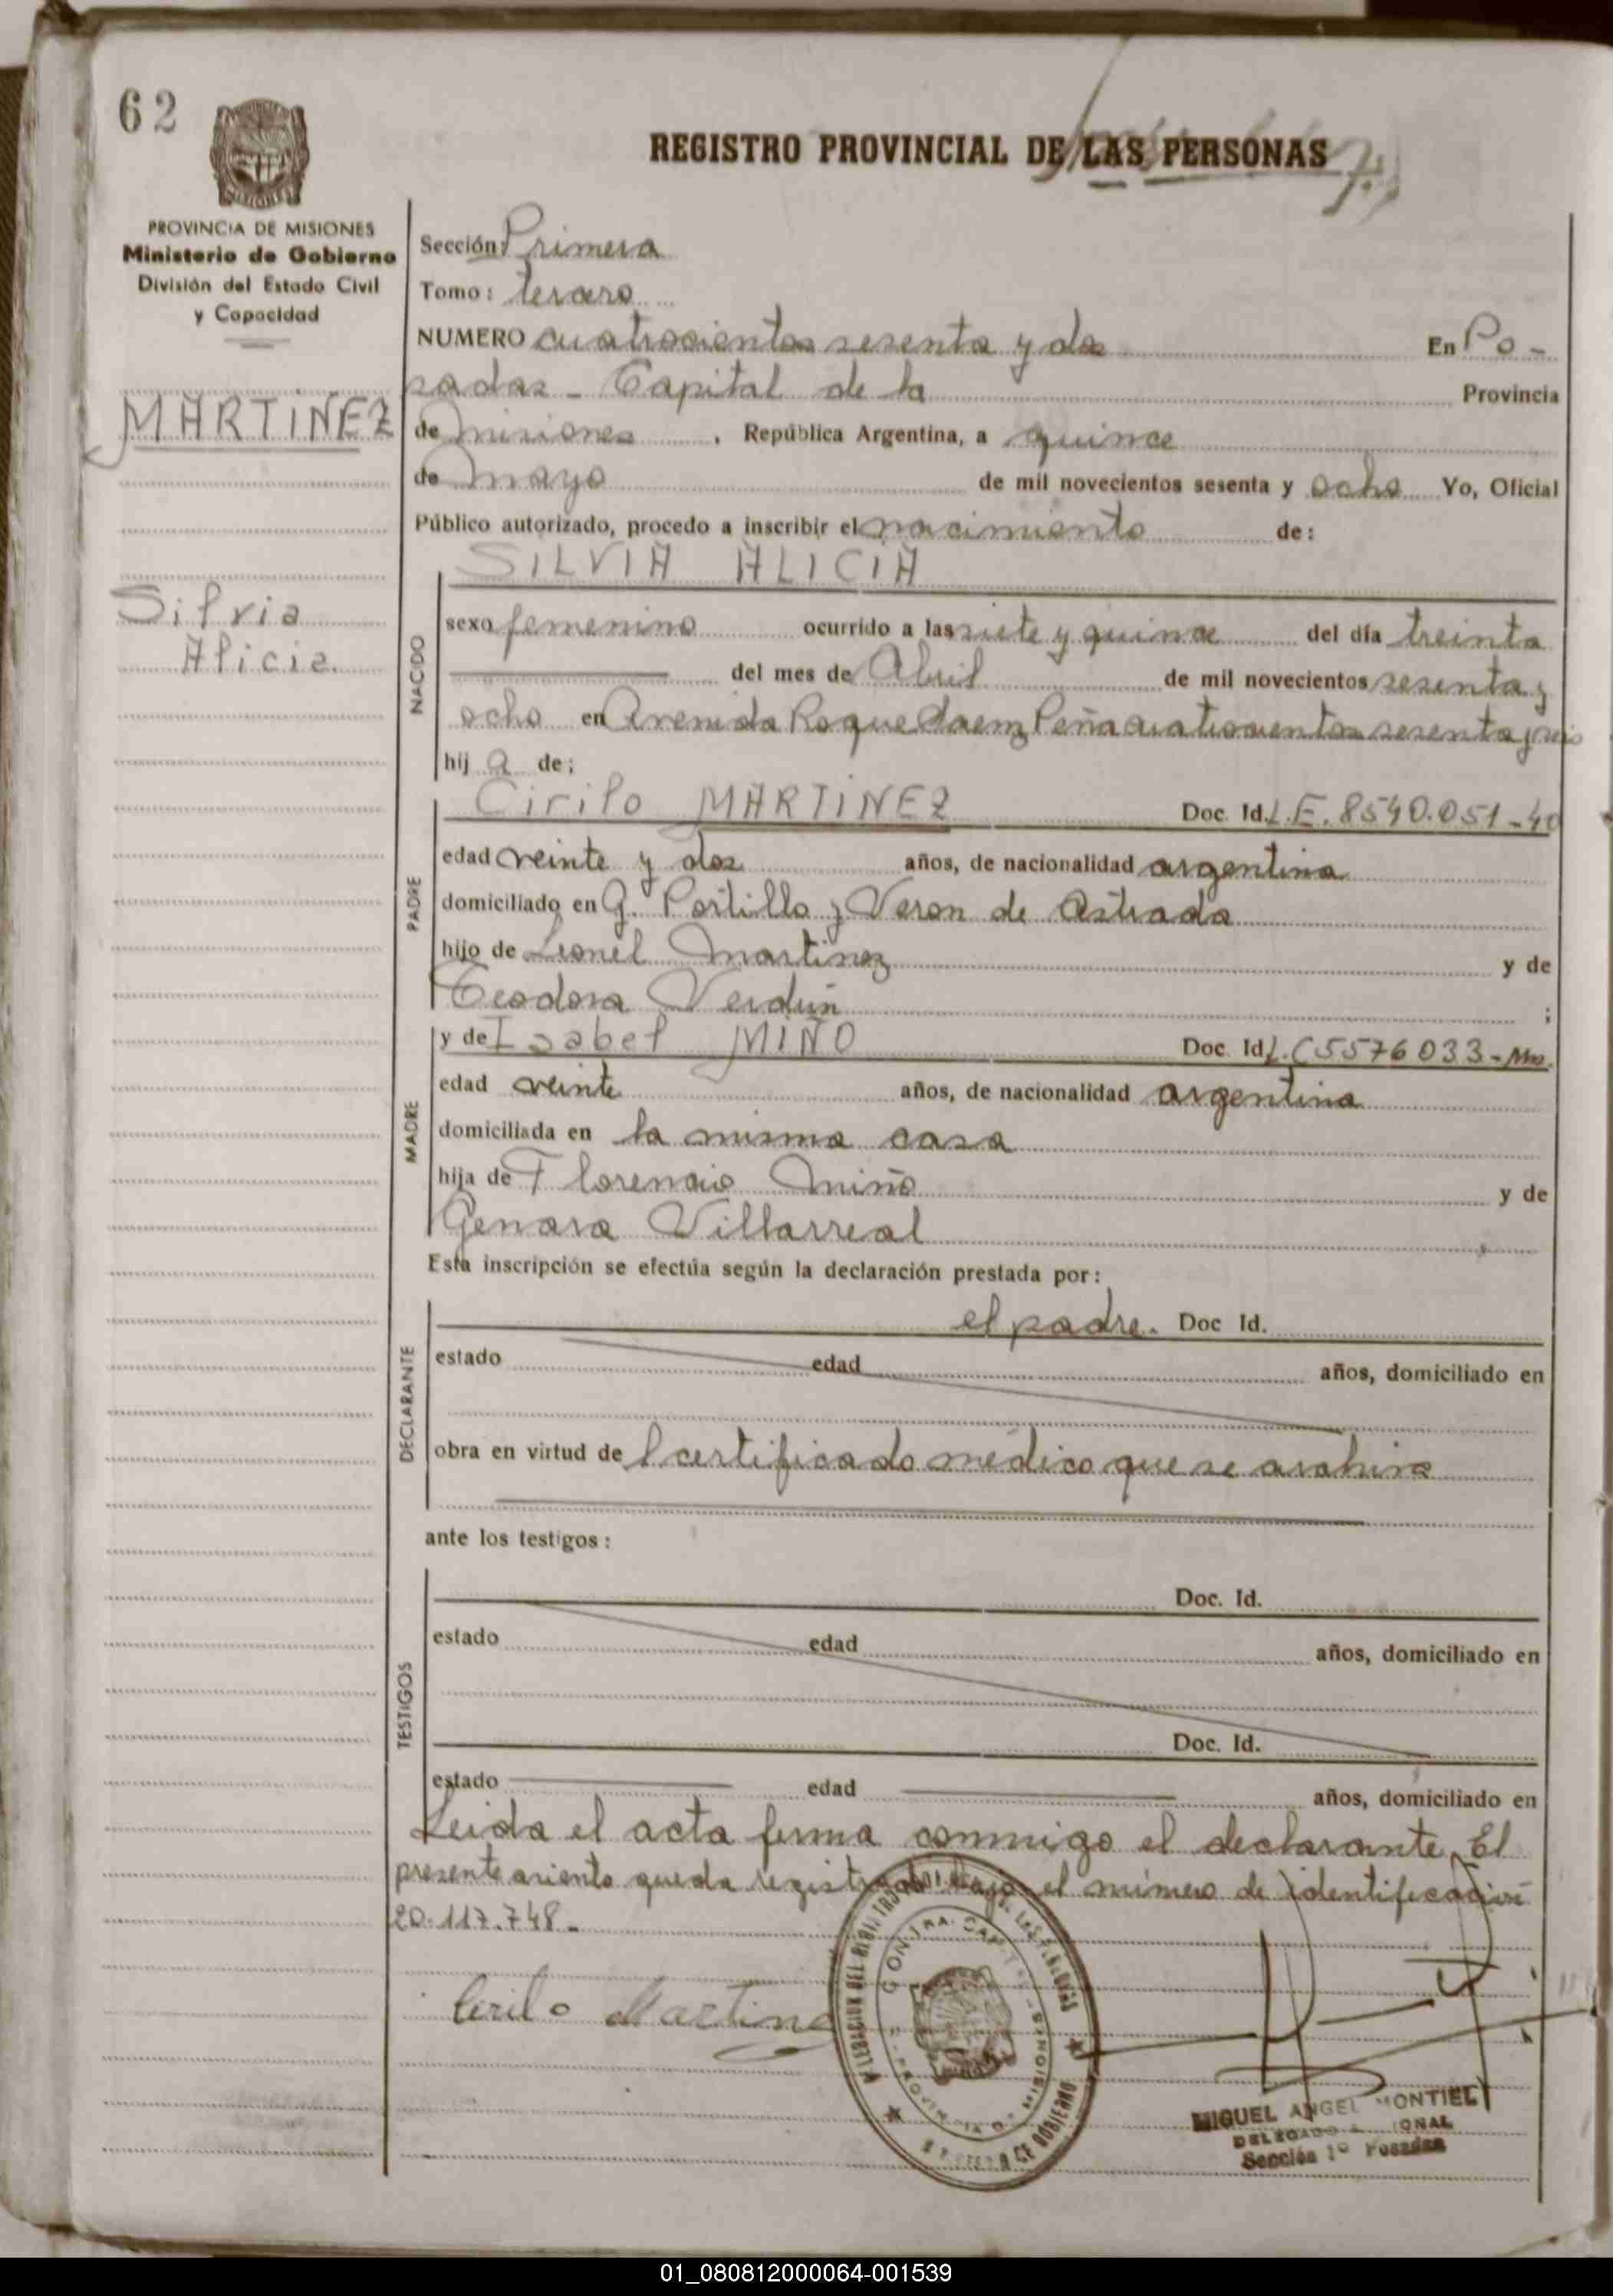 62
REGISTRO PROVINCIAL DE LAS PERSONAS
PROVINCIA DE MISIONES
Ministerio de Gobierno
División del Estado Civil
y Capacidad
MARTINEZ
Silvia
Alicia
Sección: Primera
Tomo: tercero
NUMERO cuatrocientos sesenta y dos En Po-
sadas - Capital de la Provincia
de misiones, República Argentina, a quince
de mayo de mil novecientos sesenta y ocho Yo, Oficial
Público autorizado, procedo a inscribir el nacimiento de:
SILVIA ALICIA
NACIDO
sexo femenino ocurrido a las siete y quince del día treinta
del mes de Abril de mil novecientos sesenta y
ocho en Avenida Roque Saenz Peña cuatrocientos sesenta y seis
hij a de;
PADRE
Cirilo MARTINEZ Doc. Id. L.E. 8540.051-40
edad veinte y dos años, de nacionalidad argentina
domiciliado en G. Portillo y Veron de Astrada
hijo de Leonel Martinez y de
Teodora Verdún ;
MADRE
y de Isabel MIÑO Doc. Id L.C 5576033-Mns.
edad veinte años, de nacionalidad argentina
domiciliada en la misma casa
hija de Florencio Miño y de
Genara Villarreal
Esta inscripción se efectúa según la declaración prestada por:
DECLARANTE
el padre. Doc Id.
estado edad años, domiciliado en
obra en virtud de l certificado médico que se archiva
ante los testigos:
TESTIGOS
Doc. Id.
estado edad años, domiciliado en
Doc. Id.
estado edad años, domiciliado en
Leida el acta firma conmigo el declarante. El
presente asiento queda registrado bajo el número de identificación
20.117.748-
Cirilo Martinez
MIGUEL ANGEL MONTIEL
Sección 1º Posadas
01_080812000064-001539